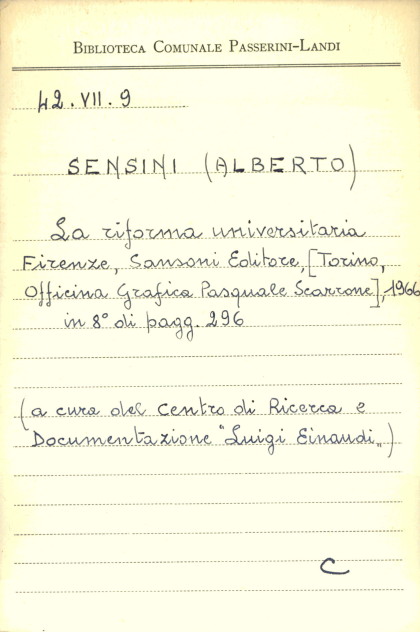 BIBLIOTECA COMUNALE PASSERINI-LANDI
42.VII.9
SENSINI (ALBERTO)
La riforma universitaria
Firenze, Sansoni Editore, [Torino,
Officina Grafica Pasquale Scarrone], 1966
in 8° di pagg. 296
(a cura del Centro di Ricerca e
Documentazione "Luigi Einaudi„)
C